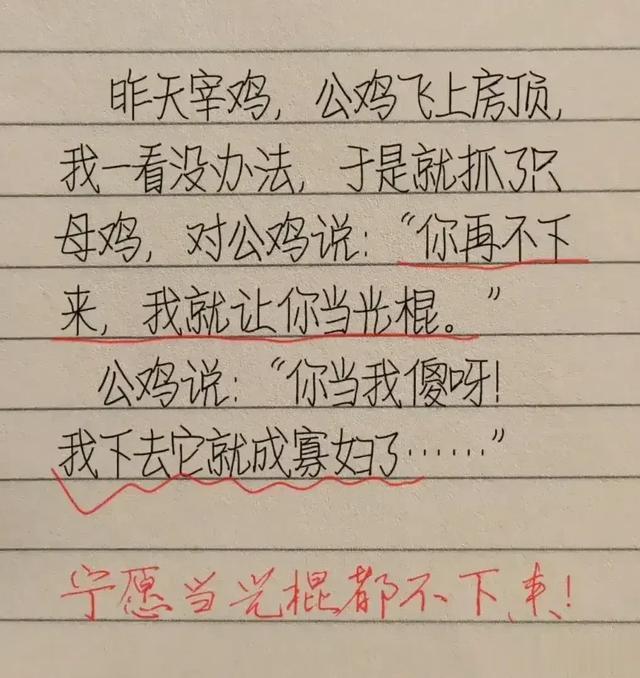 昨天宰鸡，公鸡飞上房顶，
我一看没办法，于是就抓了只
母鸡，对公鸡说：“你再不下
来，我就让你当光棍。”
公鸡说：“你当我傻呀！
我下去它就成寡妇了……”
宁愿当光棍都不下来！